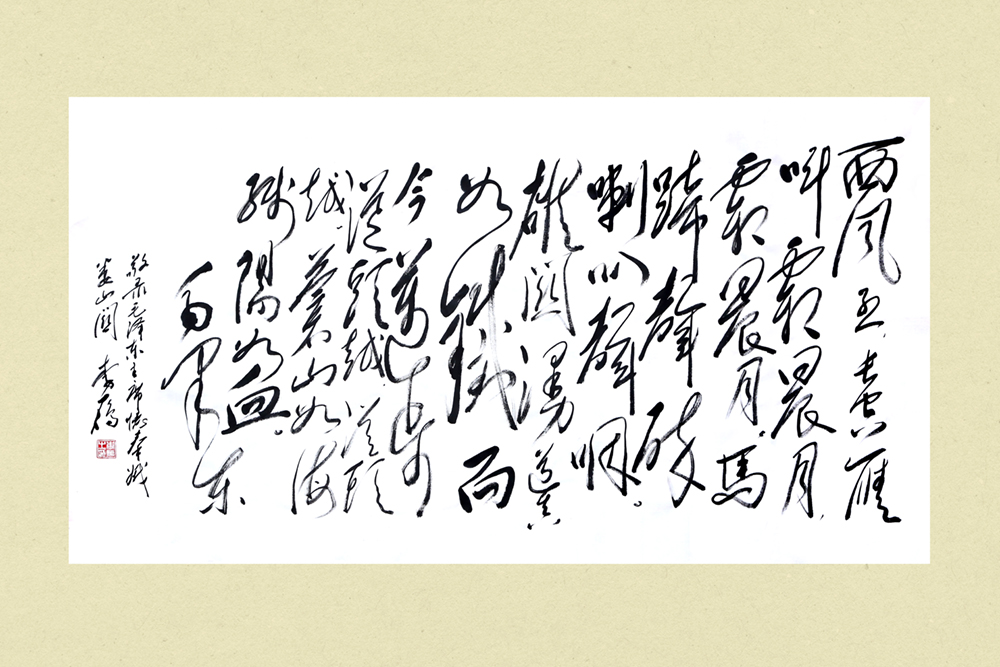 西风烈長空雁
叫霜晨月
霜晨月馬
蹄聲碎
喇叭聲咽
雄関漫道真
如鐵而
今邁步
從頭越從頭
越蒼山如海
殘陽如血
毛泽东
敬录毛泽东主席憶秦娥
娄山関